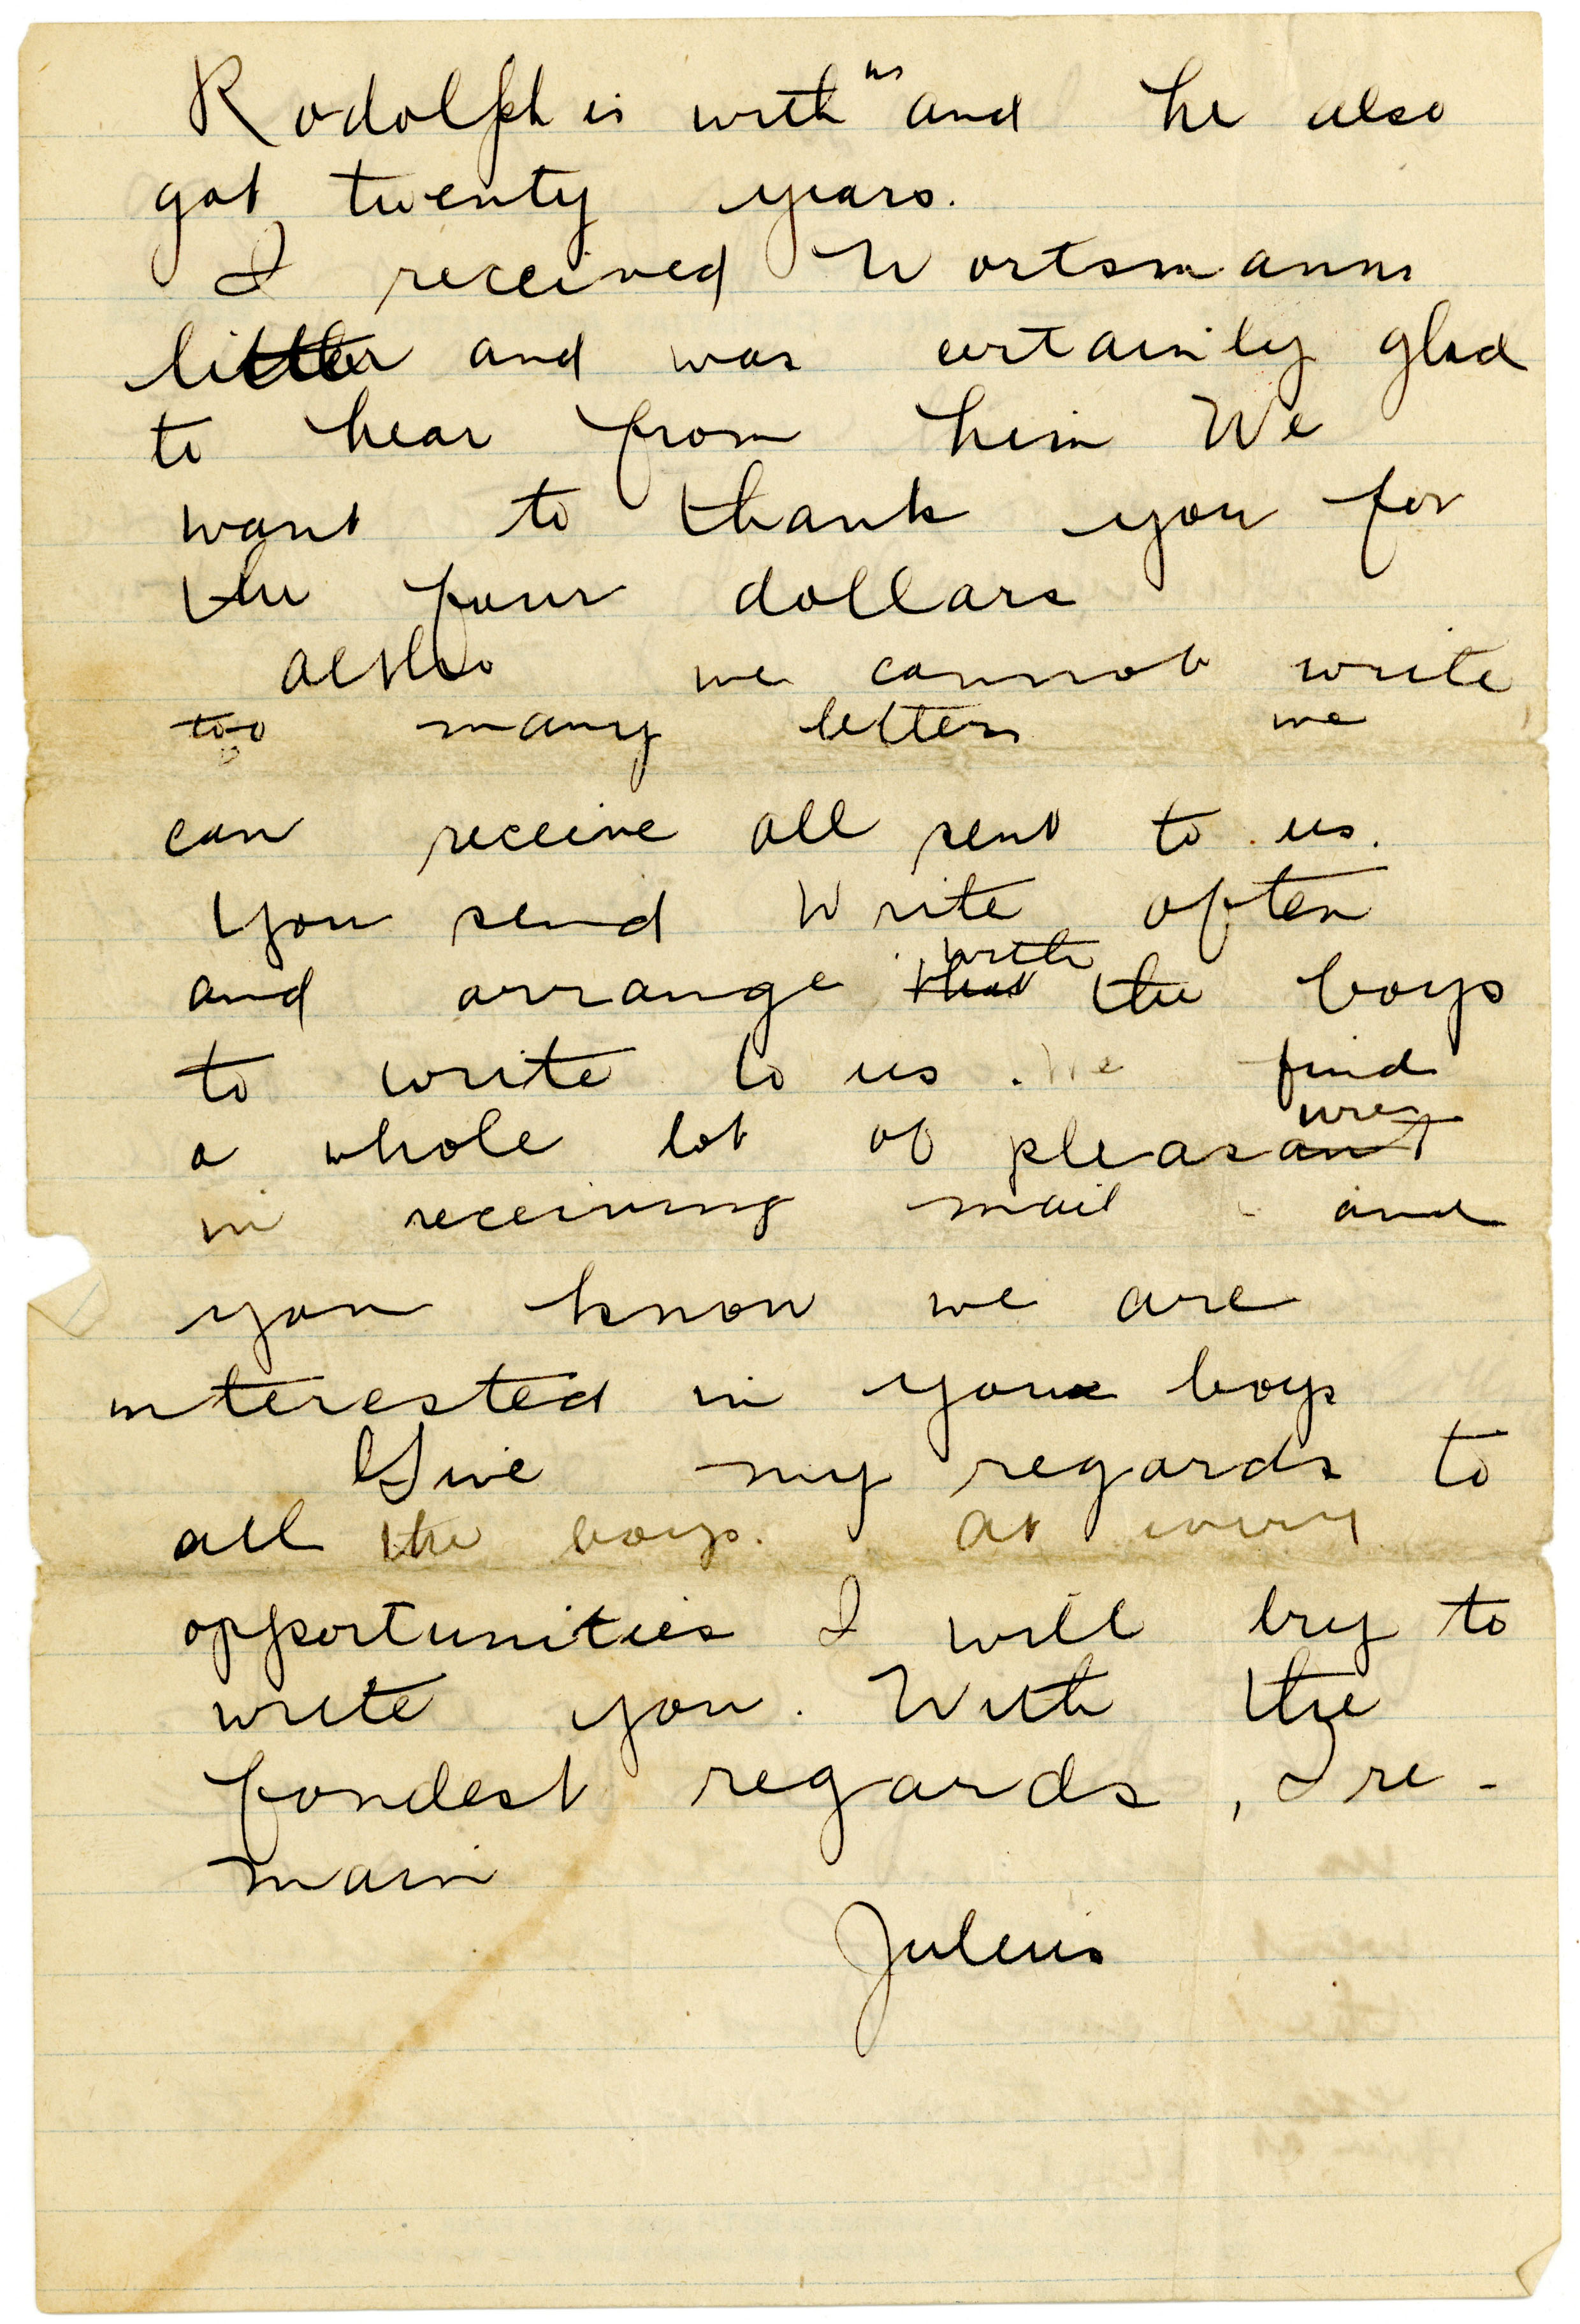 Rodolph is with us and he also
got twenty years.
I received Wortsmanns
letter and was certainly glad
to hear from him We
want to thank you for
the four dollars
altho we cannot write
too many letters we
can receive all sent to us.
You send Write often
and arrange that with the boys
to write to us. We find
a whole lot of pleasant ure
in receiving mail - and
you know we are
interested in your boys
Give my regards to
all the boys. At every
opportunities I will try to
write you. With the
fondest regards, I re-
main
Julius